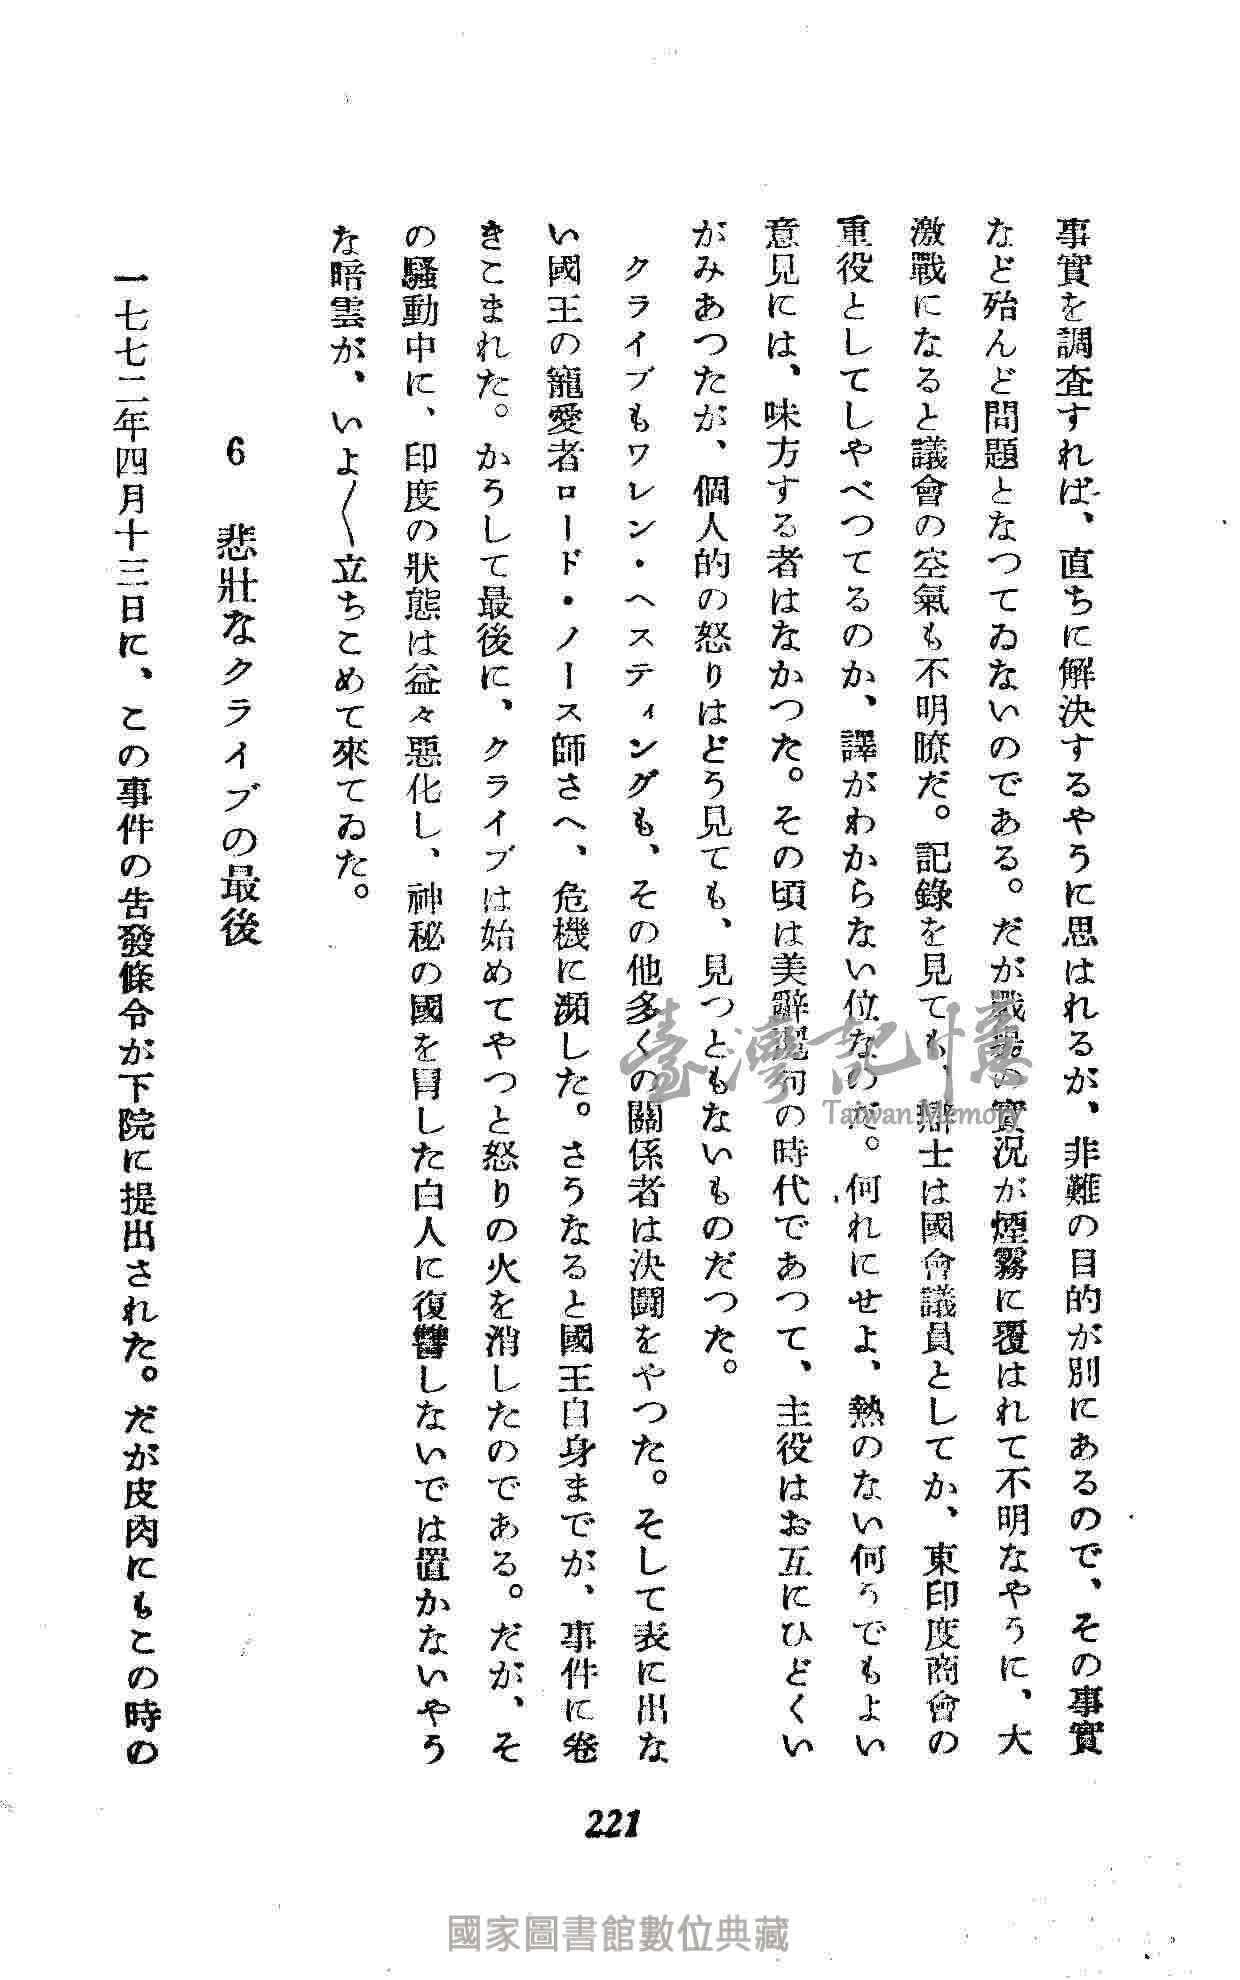 事實を調査すれば、直ちに解決するやうに思はれるが、非難の目的が別にあるので、その事實
など殆んど問題となつてゐないのである。だが戰場の實況が煙霧に覆はれて不明なやうに、大
激戰になると議會の空氣も不明瞭だ。記錄を見ても、辯士は國會議員としてか、東印度商會の
重役としてしやべつてるのか、譯がわからない位なのだ。何れにせよ、熱のない何うでもよい
意見には、味方する者はなかつた。その頃は美辭麗句の時代であつて、主役はお互にひどくい
がみあつたが、個人的の怒りはどう見ても、見つともないものだつた。
クライブもワレン・ヘスティングも、その他多くの關係者は決鬪をやつた。そして表に出な
い國王の寵愛者ロード・ノース師さへ、危機に瀕した。さうなると國王自身までが、事件に卷
きこまれた。かうして最後に、クライブは始めてやつと怒りの火を消したのである。だが、そ
の騷動中に、印度の狀態は益々惡化し、神秘の國を冒した白人に復讐しないでは置かないやう
な暗雲が、いよ〱立ちこめて來てゐた。
6 悲壯なクライブの最後
一七七二年四月十三日に、この事件の告發條令が下院に提出された。だが皮肉にもこの時の
221
臺灣記憶
Taiwan Memory
國家圖書館數位典藏